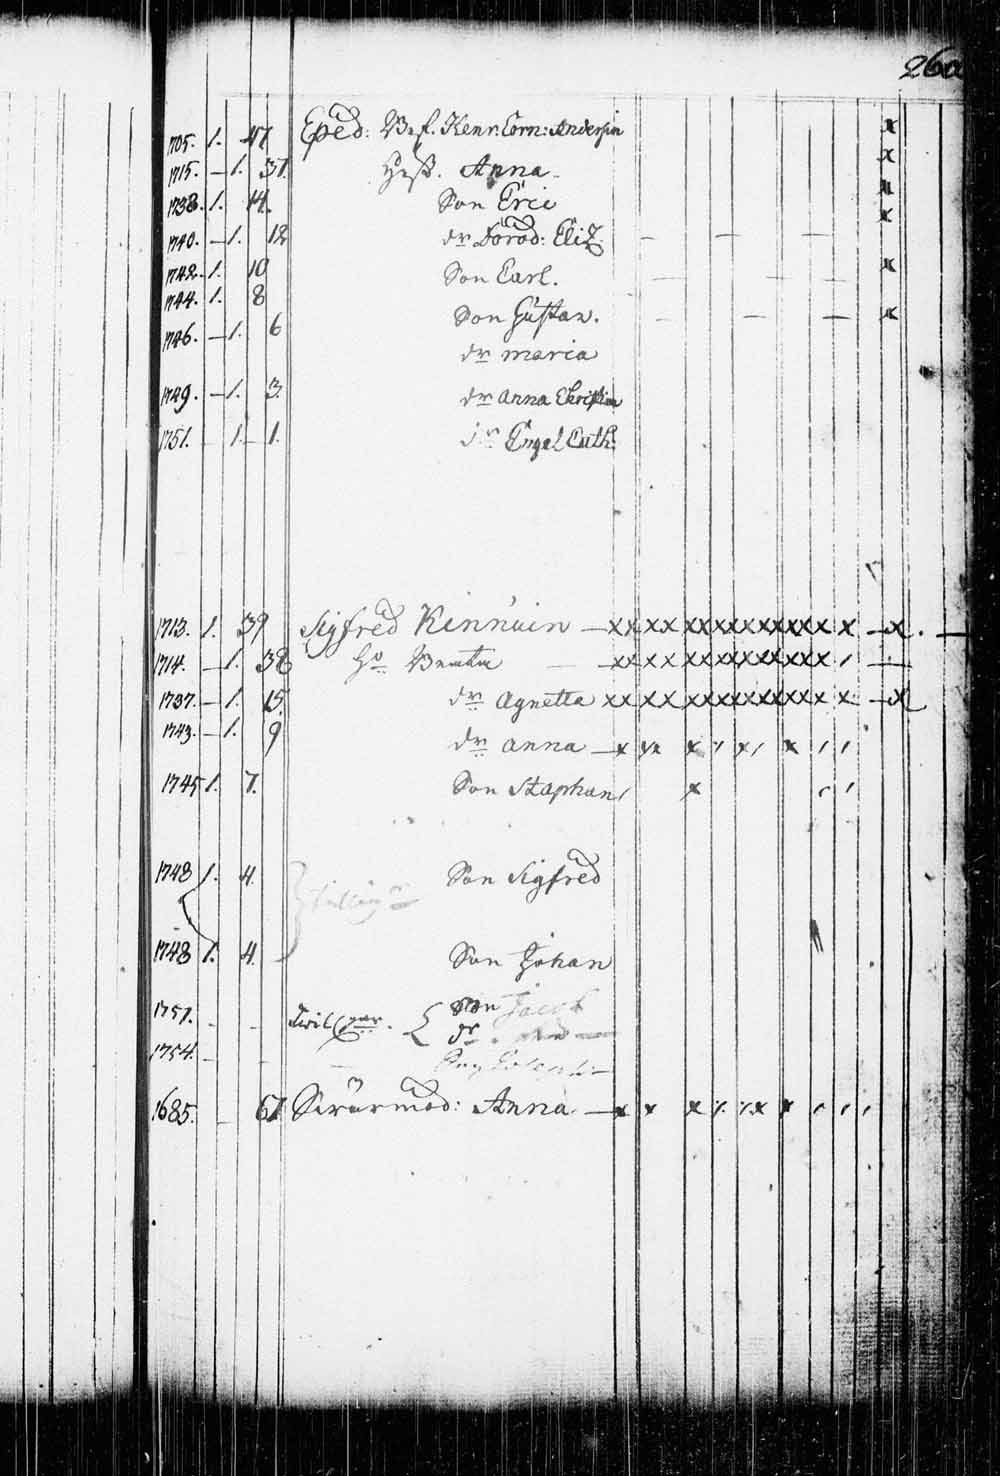 260
1705. 1. 47 Exped: Bef. Henr: Corn: Andersin
1715. – 1. 37. Hust. Anna.
1738. 1. 14. Son Eric
1740. – 1. 12 dr Dorod: Eliz.
1742. 1. 10 Son Carl.
1744. 1. 8 Son Gustav.
1746. – 1. 6 dr maria
1749. – 1. 3. dr Anna Christina
1751. – 1. 1. dr Engel Cath:
1713. 1. 39 Sigfred Kinnuin – xx xx xx xx xx xx xx x x – x. –
1714. – 1. 38 Ho – xx xx xx xx xx xx xx x 1
1737. – 1. 15. dr Agnetta xx xx xx xx xx xx xx x x – x
1743. – 1. 9 dr anna – x x x 1 x 1 x 1 1
1745 1. 7. Son Staphan 1 x 1 1
1748 1. 4. Son Sigfred
1748 1. 4. Son Johan
1751. – – { Son Jacob
dr
1754. –
1685. – 67 Swärmod: Anna – x x x 1 1 x x 1 1 1